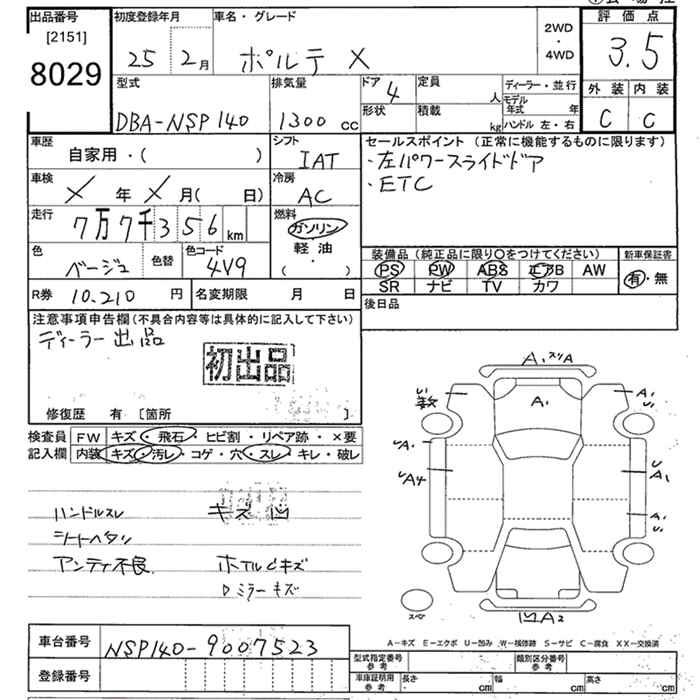 出品番号 初度登録年月 車名・グレード 評価点
[2151]
8029
25 2月 ポルテ X 2WD・4WD 3.5
型式 排気量 ドア 4 定員 人 ディーラー・並行 外装 内装
形状 積載 kg モデル年式 年
DBA-NSP140 1300 cc ハンドル 左・右 C C
車歴 シフト セールスポイント (正常に機能するものに限ります)
自家用・( ) IAT ・左パワースライドドア
車検 冷房 ・ETC
X年X月( 日) AC
走行 燃料
7万7千356km ガソリン
軽油
・( )
色 色替 色コード 装備品 (純正品に限り○をつけてください) 新車保証書
ベージュ 4V9 PS PW ABS エアB AW 有・無
SR ナビ TV カワ
R券 10.210 円 名変期限 月 日 後日品
注意事項申告欄 (不具合内容等は具体的に記入して下さい)
ディーラー出品
初出品
修復歴 有 〔箇所 〕
検査員 FW キズ・飛石・ヒビ割・リペア跡・×要
記入欄 内装 キズ・汚レ・コゲ・穴・スレ・キレ・破レ
ハンドルスレ キズ凹
シートヘタリ
アンティ不良 ホイルキズ
ミラーキズ
A₁ スリA
A₁
A₁
A₁
A4
A₁
A₁
スペア
凹A2
A-キズ E-エクボ U-凹み W-補修跡 S-サビ C-腐食 XX-交換済
車台番号 NSP140-9007523
登録番号
型式指定番号 参考 類別区分番号 参考
車庫証明用 参考 長さ cm 幅 cm 高さ cm